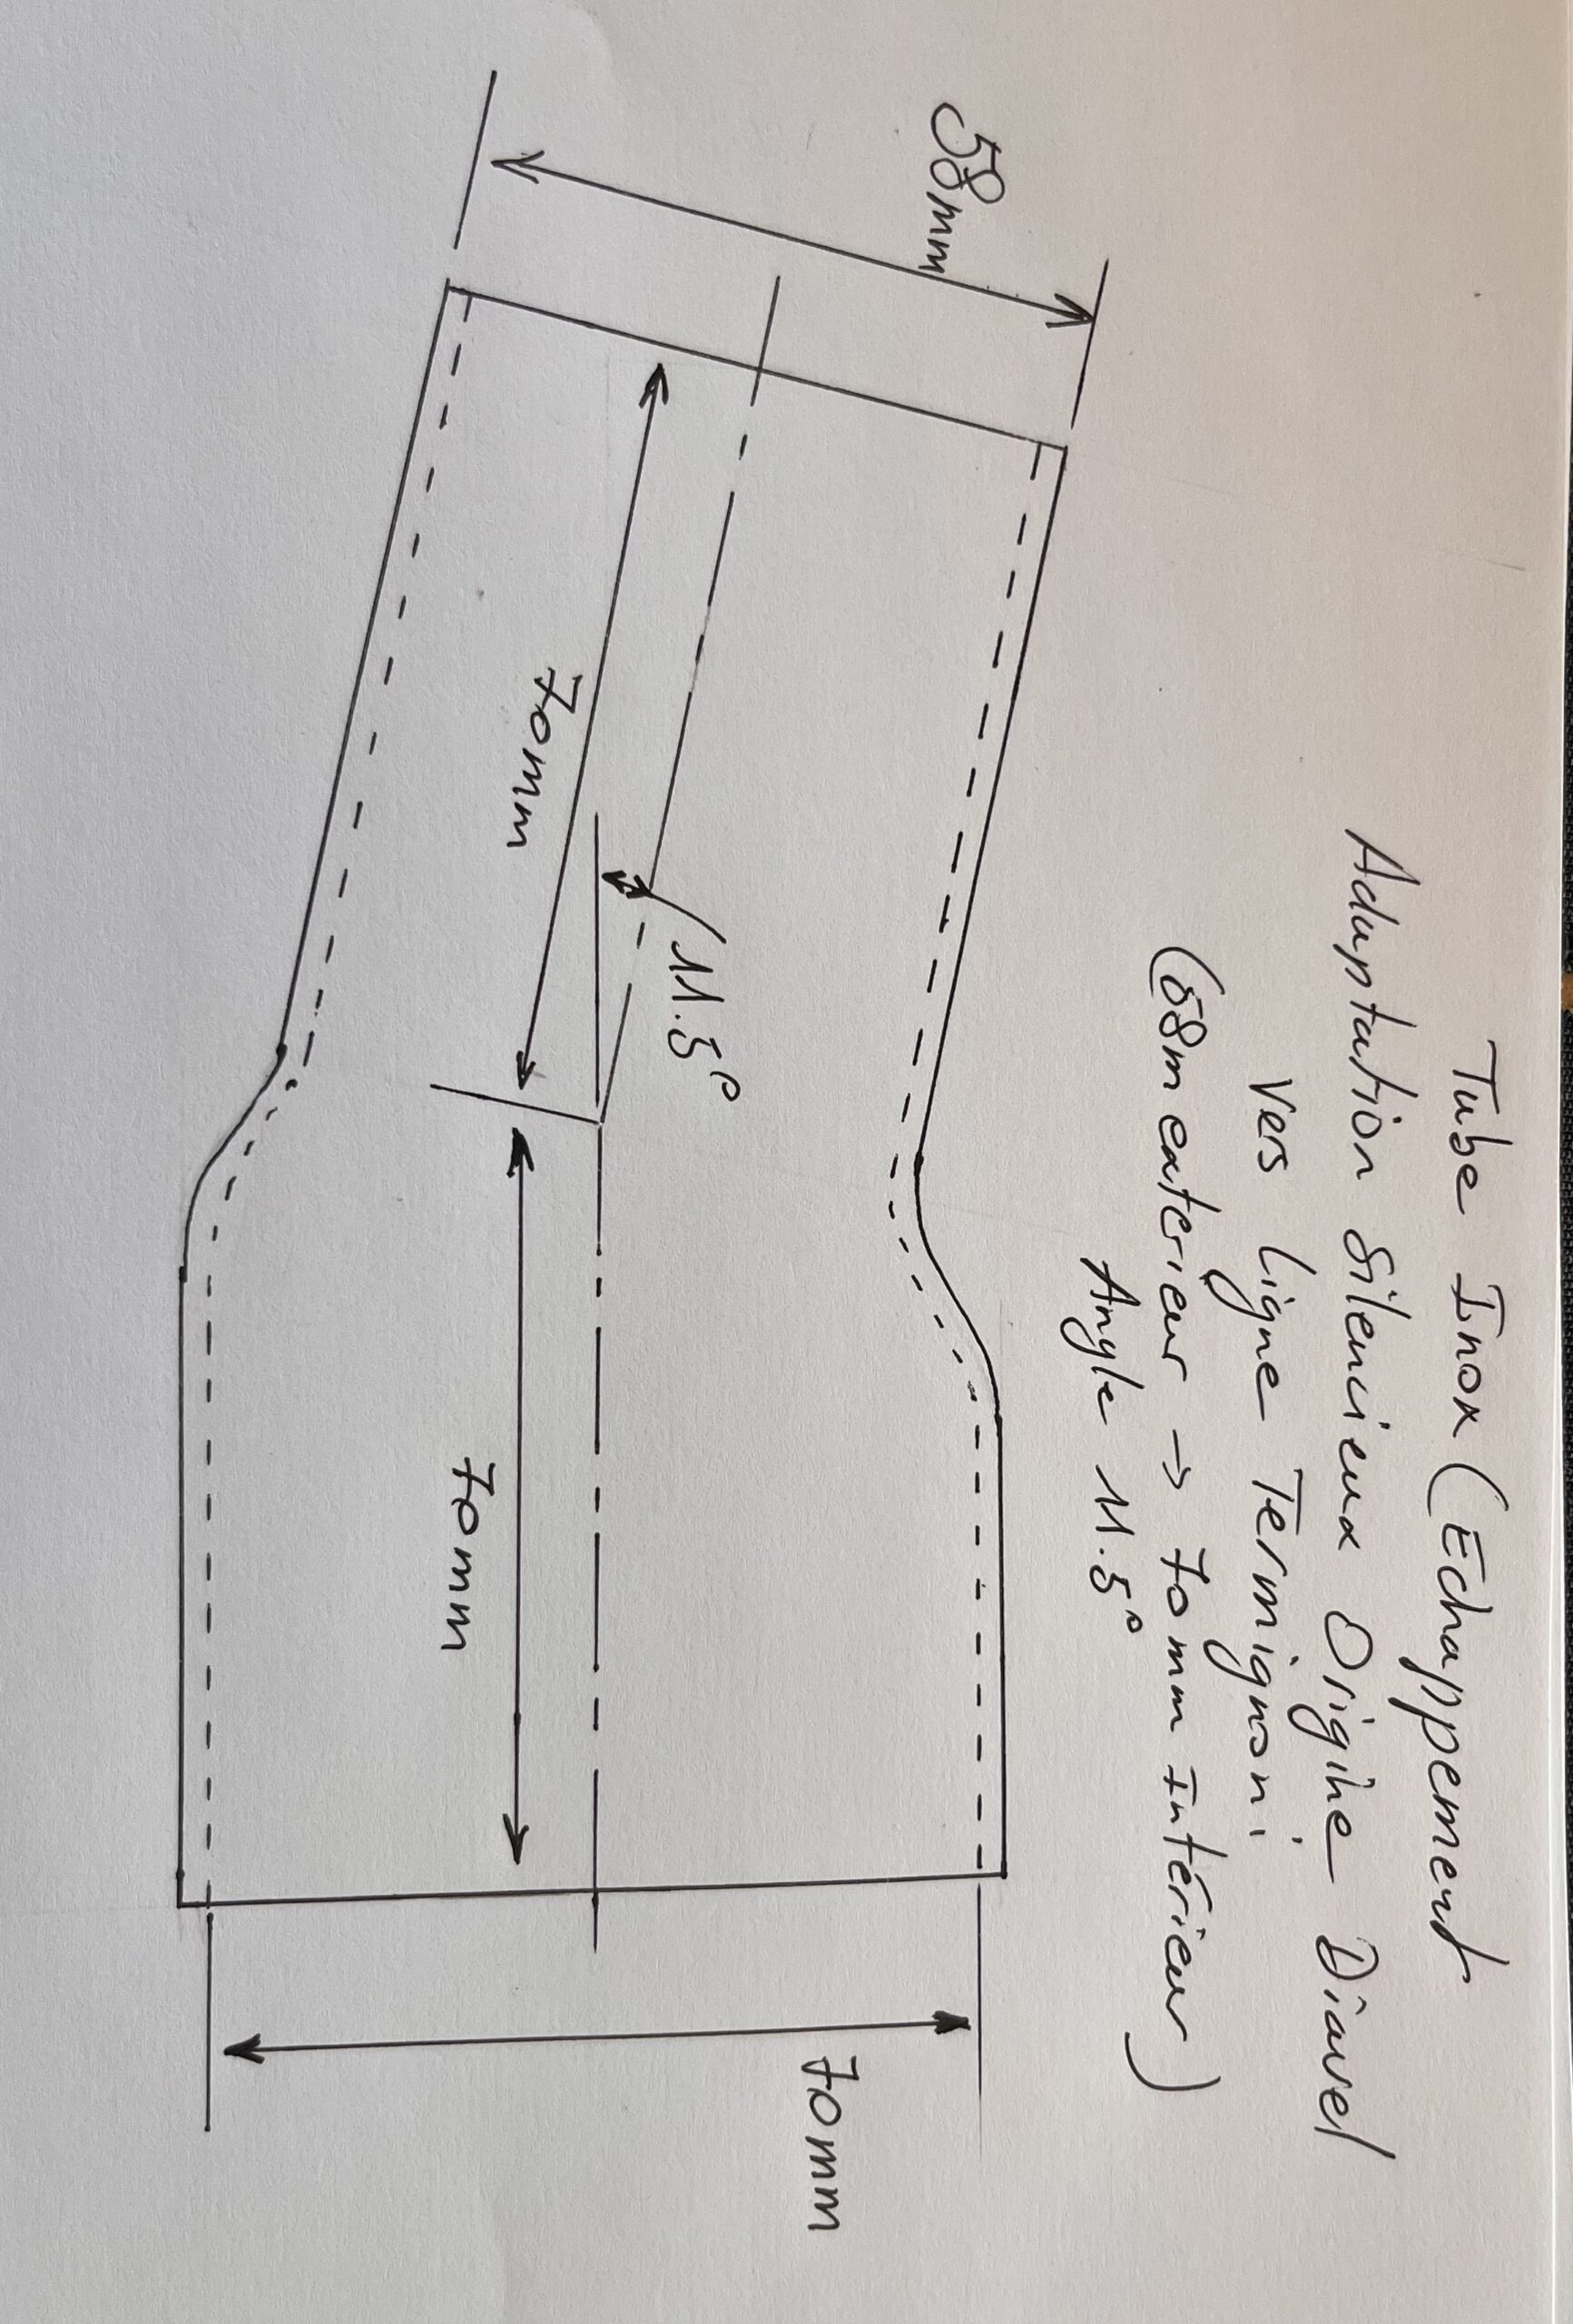 Tube Inox (Echappement
Adaptation Silencieux Origine Diavel
Vers Ligne Termignoni
(58mm exterieur → 70mm Intérieur)
Angle 11.5°
58mm
70mm
11.5°
70mm
70mm